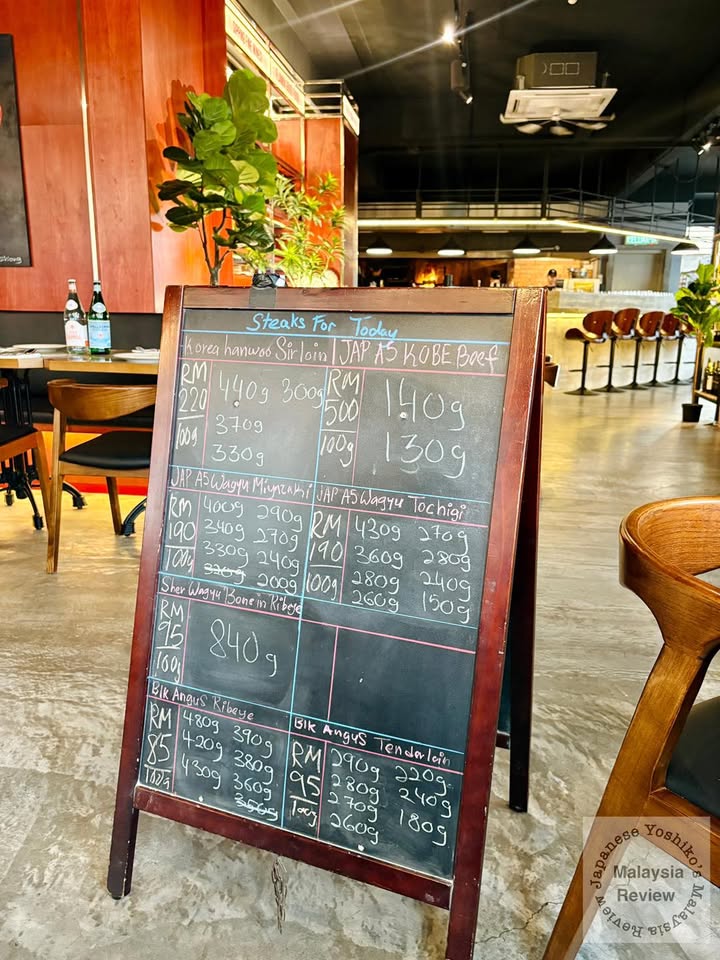 Steaks For Today
Korea hanwoo Sirloin
RM 220 / 100g
440g 300g
370g
330g
JAP A5 KOBE Beef
RM 500 / 100g
140g
130g
JAP A5 Wagyu Miyazaki
RM 190 / 100g
400g 290g
340g 270g
330g 240g
320g 200g
JAP A5 Wagyu Tochigi
RM 190 / 100g
430g 270g
360g 280g
280g 240g
260g 150g
Sher Wagyu Bone in Ribeye
RM 95 / 100g
840g
Blk Angus Ribeye
RM 85 / 100g
480g 390g
420g 380g
430g 360g
350g
Blk Angus Tenderloin
RM 95 / 100g
290g 220g
280g 240g
270g 180g
260g
Japanese Yoshiko's Malaysia Review
Malaysia
Review